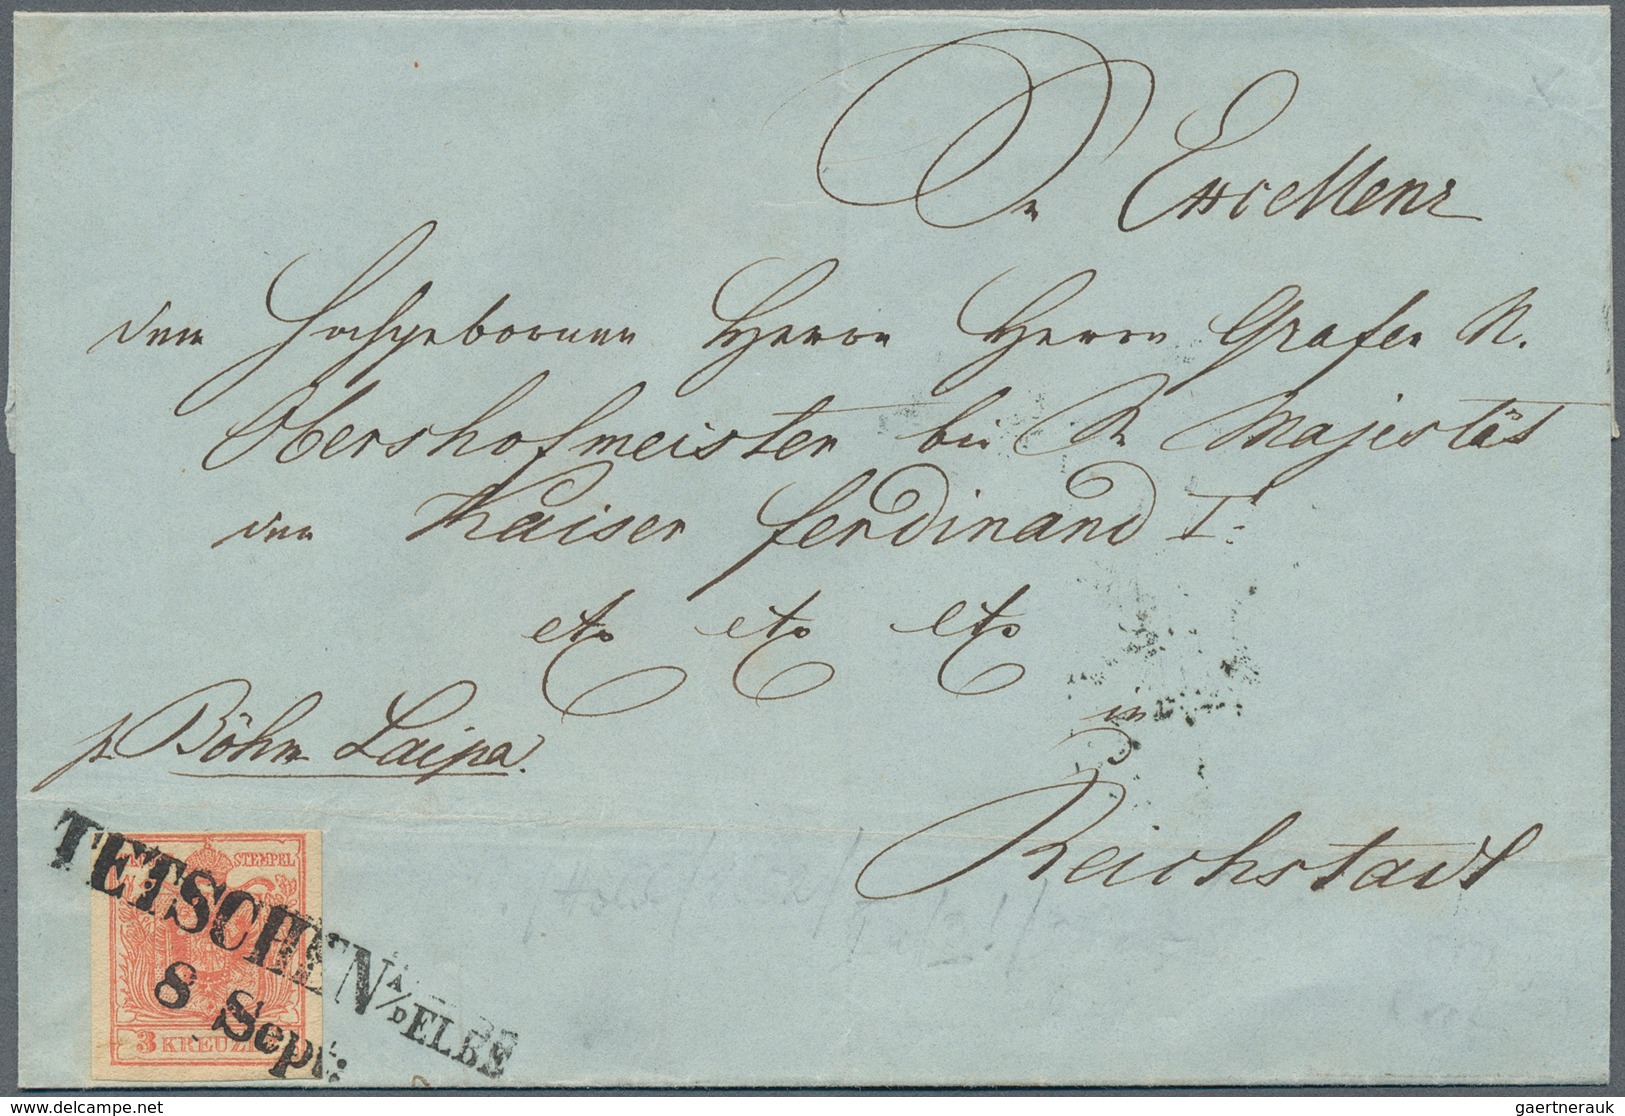 Sr Excellenz
dem Hochgebornen Herrn Herrn Grafen N.
Obersthofmeister bei Sr Majestät
den Kaiser Ferdinand I.
etc etc etc
in
p. Böhm Laipa.
Reichstadt
STEMPEL
TETSCHEN A/D ELBE
8 Sept:
3 KREUZER
delcampe.net
gaertnerauk